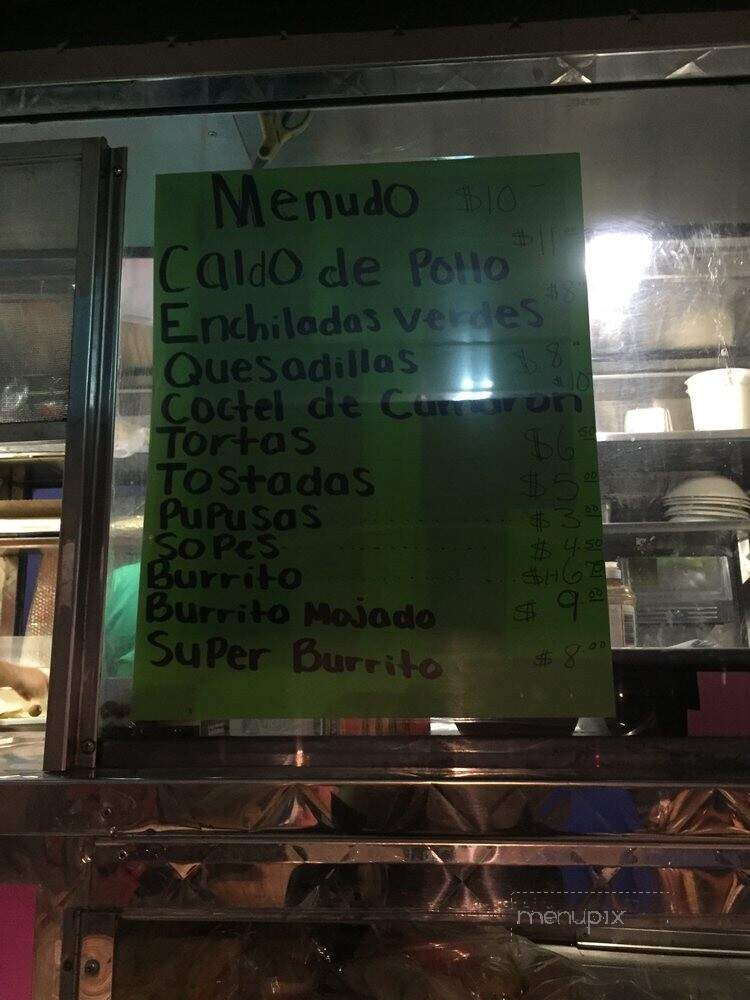 Menudo $10
Caldo de Pollo $11
Enchiladas verdes $8
Quesadillas $8
Coctel de Camaron $10
Tortas $6.50
Tostadas $5.00
Pupusas $3.00
Sopes $4.50
Burrito
Burrito Mojado $9.00
Super Burrito $8.00
menupix